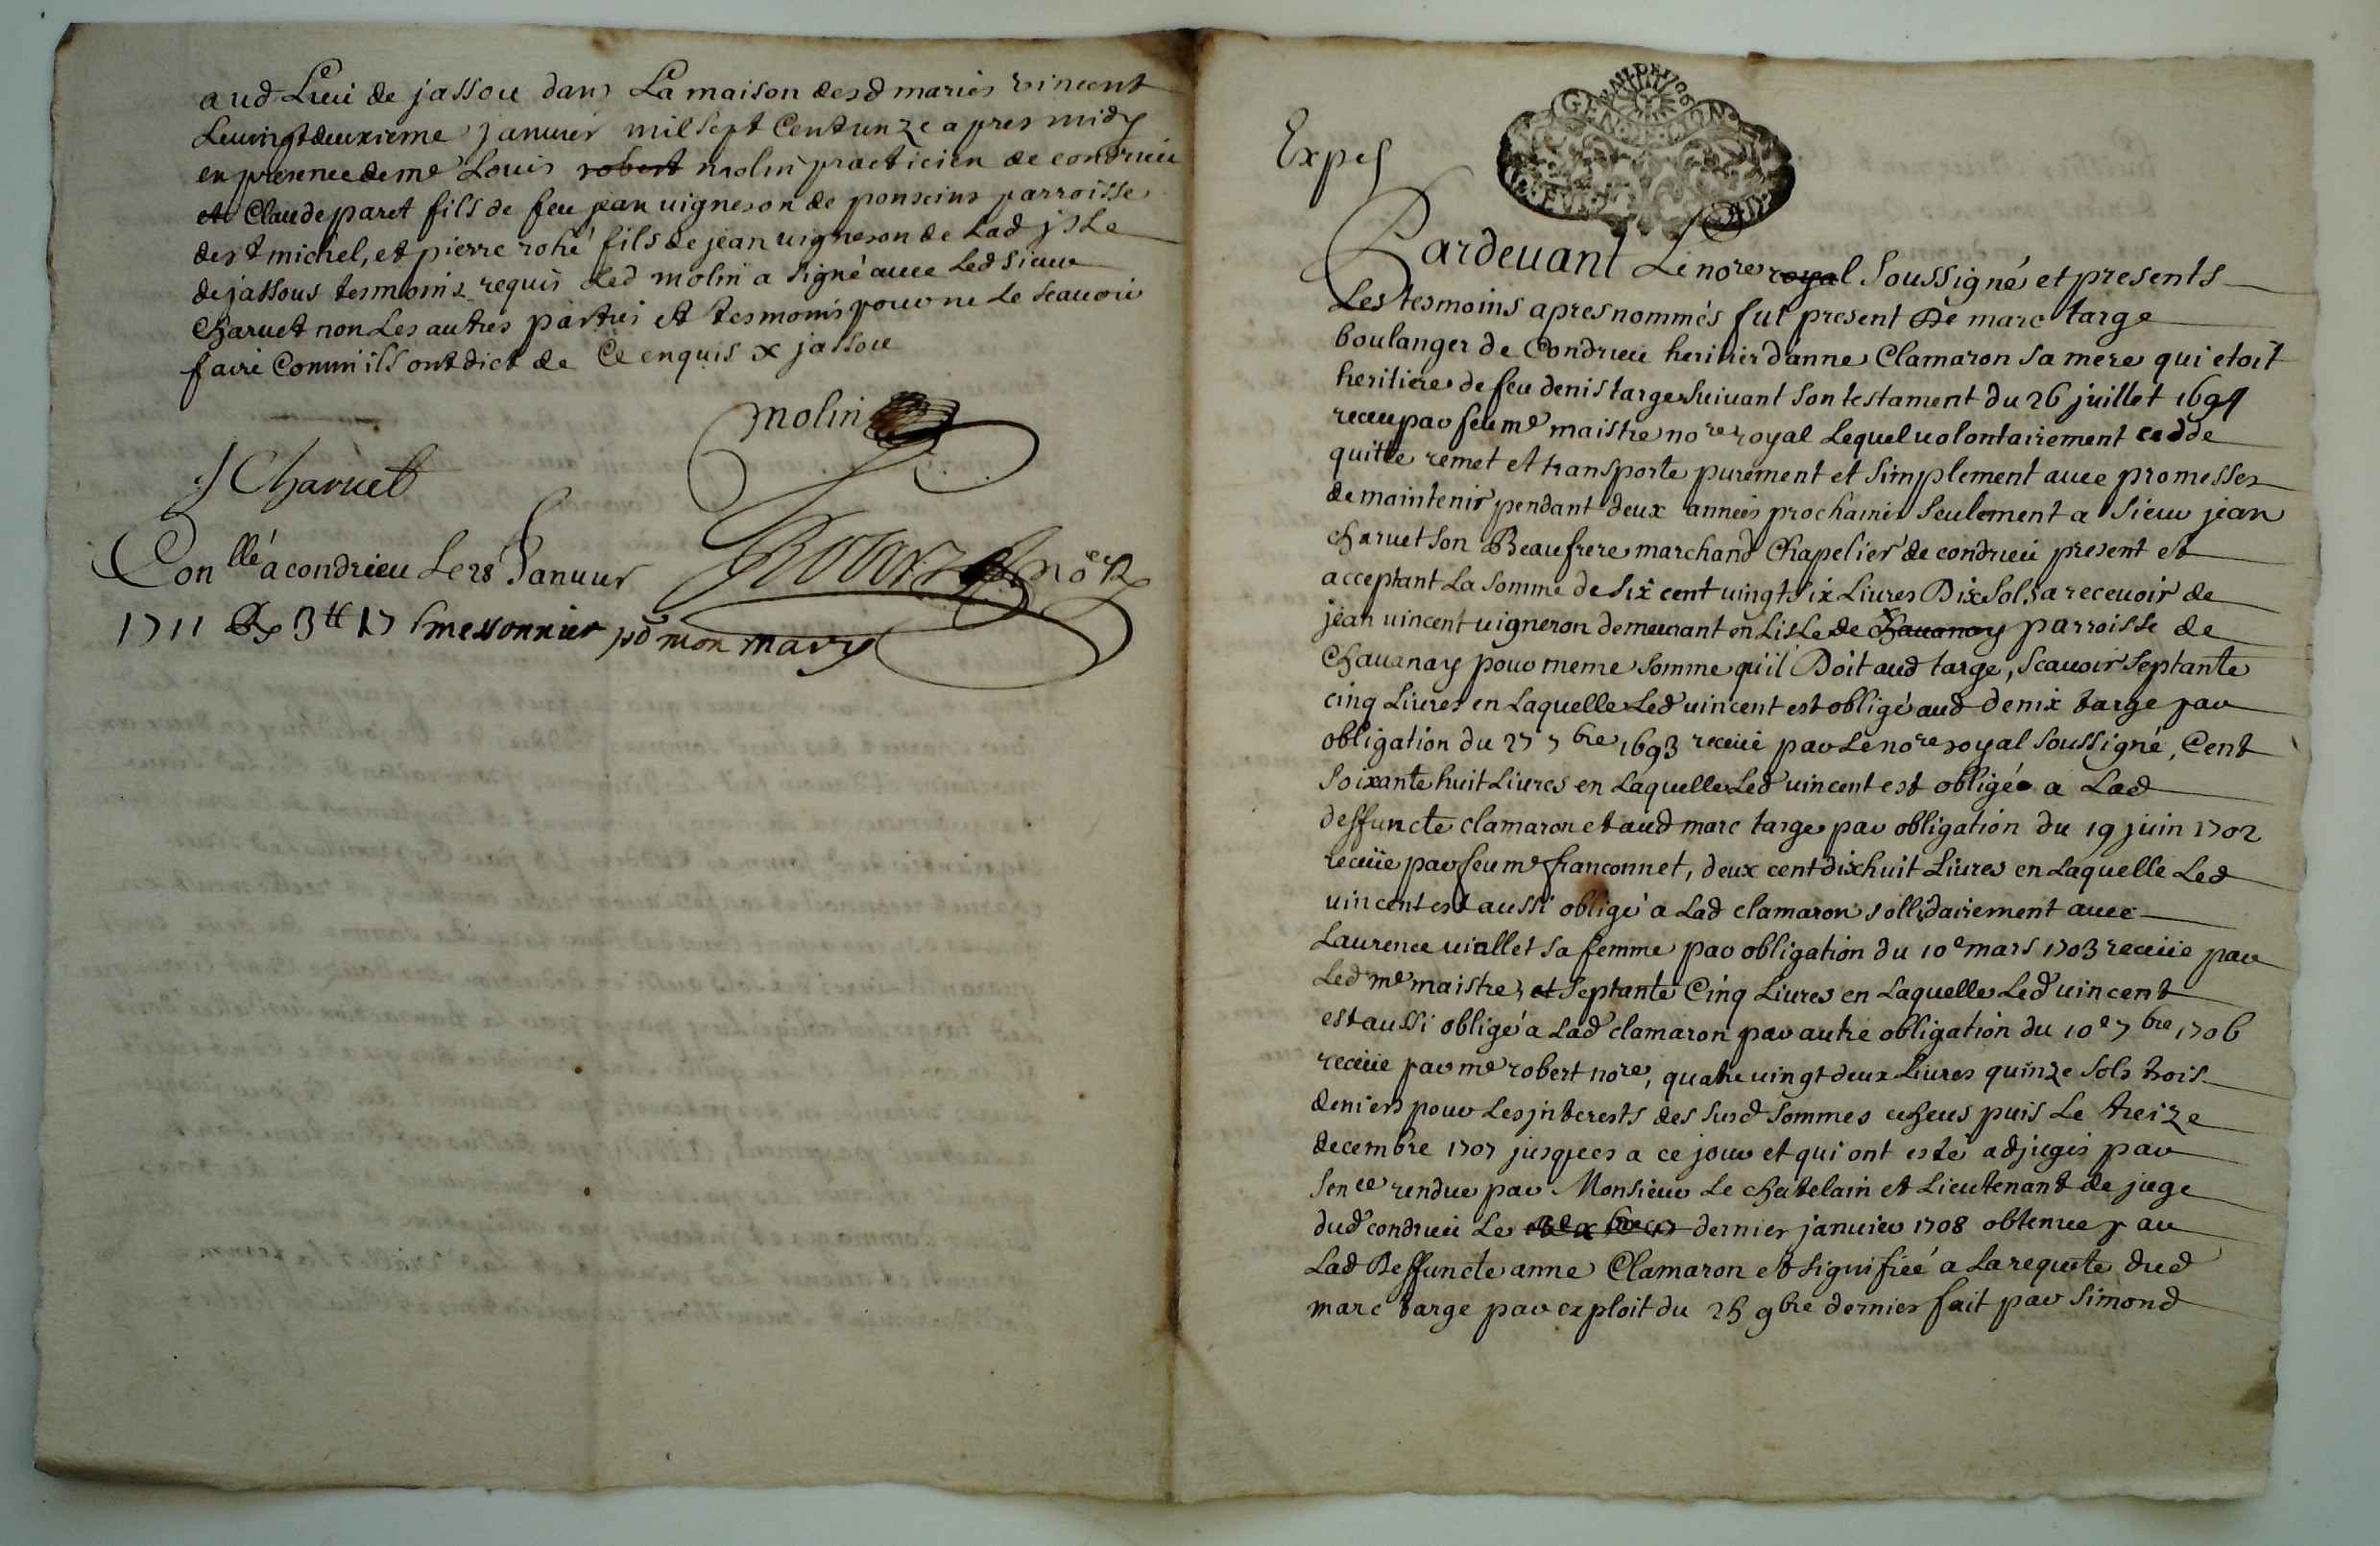 aud Lieu de jassou dans La maison desd mariés vincent
Le vingt deuxieme janvier mil sept Cent unze apres midy
en presence de me Louis robert molin practicien de condrieu
et Claude paret fils de feu jean vigneron de ponsins parroisse
de st michel, et pierre rohé fils de jean vigneron de Lad jsle
de jassous tesmoins requis Led molin a signé avec Led sieur
Charvet non Les autres parties et tesmoins pour ne le scavoir
faire Comm'ils ont dict de Ce enquis x jassou
molin
J Charvet
Con llé a condrieu Le 28 Janvier
Robert nore
1711 Rx 3 tt 17 s messonnier pd mon mary
Expef
GEN
Pardevant Le nore royal Soussigné et presents
Les tesmoins apres nommés fut present Me marc targe
boulanger de Condrieu heritier d'anne Clamaron sa mere qui etoit
heritiere de feu denis targe suivant son testament du 26 juillet 1694
receu par feu me maistre nore royal Lequel volontairement cedde
quitte remet et transporte purement et simplement avec promesses
de maintenir pendant deux années prochaines seulement a sieur jean
charvet son Beaufrere marchand Chapelier de condrieu present et
acceptant La somme de six cent vingt six Livres Dix sols a recevoir de
jean vincent vigneron demeurant en Lisle de Chavanay parroisse de
Chavanay pour meme somme qu'il Doit aud targe, scavoir septante
cinq Livres en Laquelle Led vincent est obligé aud denix targe par
obligation du 27 7bre 1693 receüe par Le nore royal soussigné, Cent
soixante huit Livres en Laquelle Led vincent est obligé a Lad
deffuncte clamaron et aud marc targe par obligation du 19 juin 1702
receüe par feu me franconnet, deux cent dixhuit Livres en Laquelle Led
vincent est aussi obligé a Lad clamaron sollidairement avec
Laurence viallet sa femme par obligation du 10e mars 1703 receüe par
Led me maistre, et septante Cinq Livres en Laquelle Led vincent
est aussi obligé a Lad clamaron par autre obligation du 10e 7bre 1706
receüe par me robert nore, quatre vingt deux Livres quinze sols trois
deniers pour Les jnterests des susd sommes echeus puis Le treize
decembre 1707 jusques a ce jour et qui ont esté adjugés par
sence rendue par Monsieur Le chatelain et Lieutenant de juge
dud condrieu Le dernier janvier 1708 obtenue par
Lad Deffuncte anne Clamaron et signifiée a La requete dud
marc targe par exploit du 25 9bre dernier fait par simond